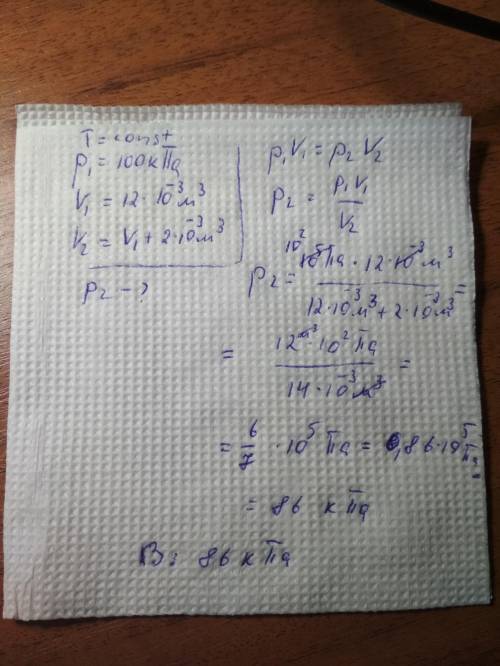 T = const
p₁ = 100 кПа
V₁ = 12 · 10⁻³ м³
V₂ = V₁ + 2 · 10⁻³ м³
p₂ - ?
p₁V₁ = p₂ V₂
p₂ = p₁V₁ / V₂
p₂ = 10⁵ Па · 12 · 10⁻³ м³ / 12 · 10⁻³ м³ + 2 · 10⁻³ м³ =
= 12 м³ · 10² Па / 14 · 10⁻³ м³ =
= 6/7 · 10⁵ Па = 0,86 · 10⁵ Па =
= 86 кПа
В: 86 кПа